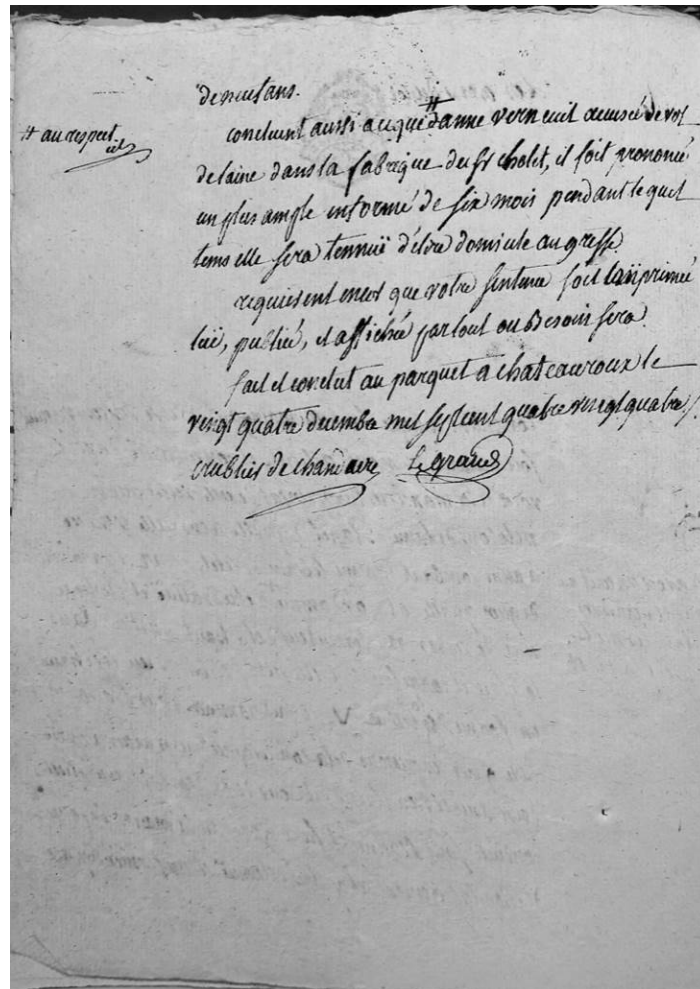 de neuf ans.
# au respect
concluent aussi a ce que # d'anne verneuil accusée de vol
de laine dans la fabrique du Sr cholet, il soit prononcé
un plus ample informé de six mois pendant lequel
tems elle sera tennuë d'élire domicile au greffe
requierent encor que votre sentence soit imprimée
luë, publiée, et affichée partout ou Besoin sera
fait et conclut au parquet a chateauroux le
vingt quatre decembre mil sept cent quatre vingt quatre
Legrand